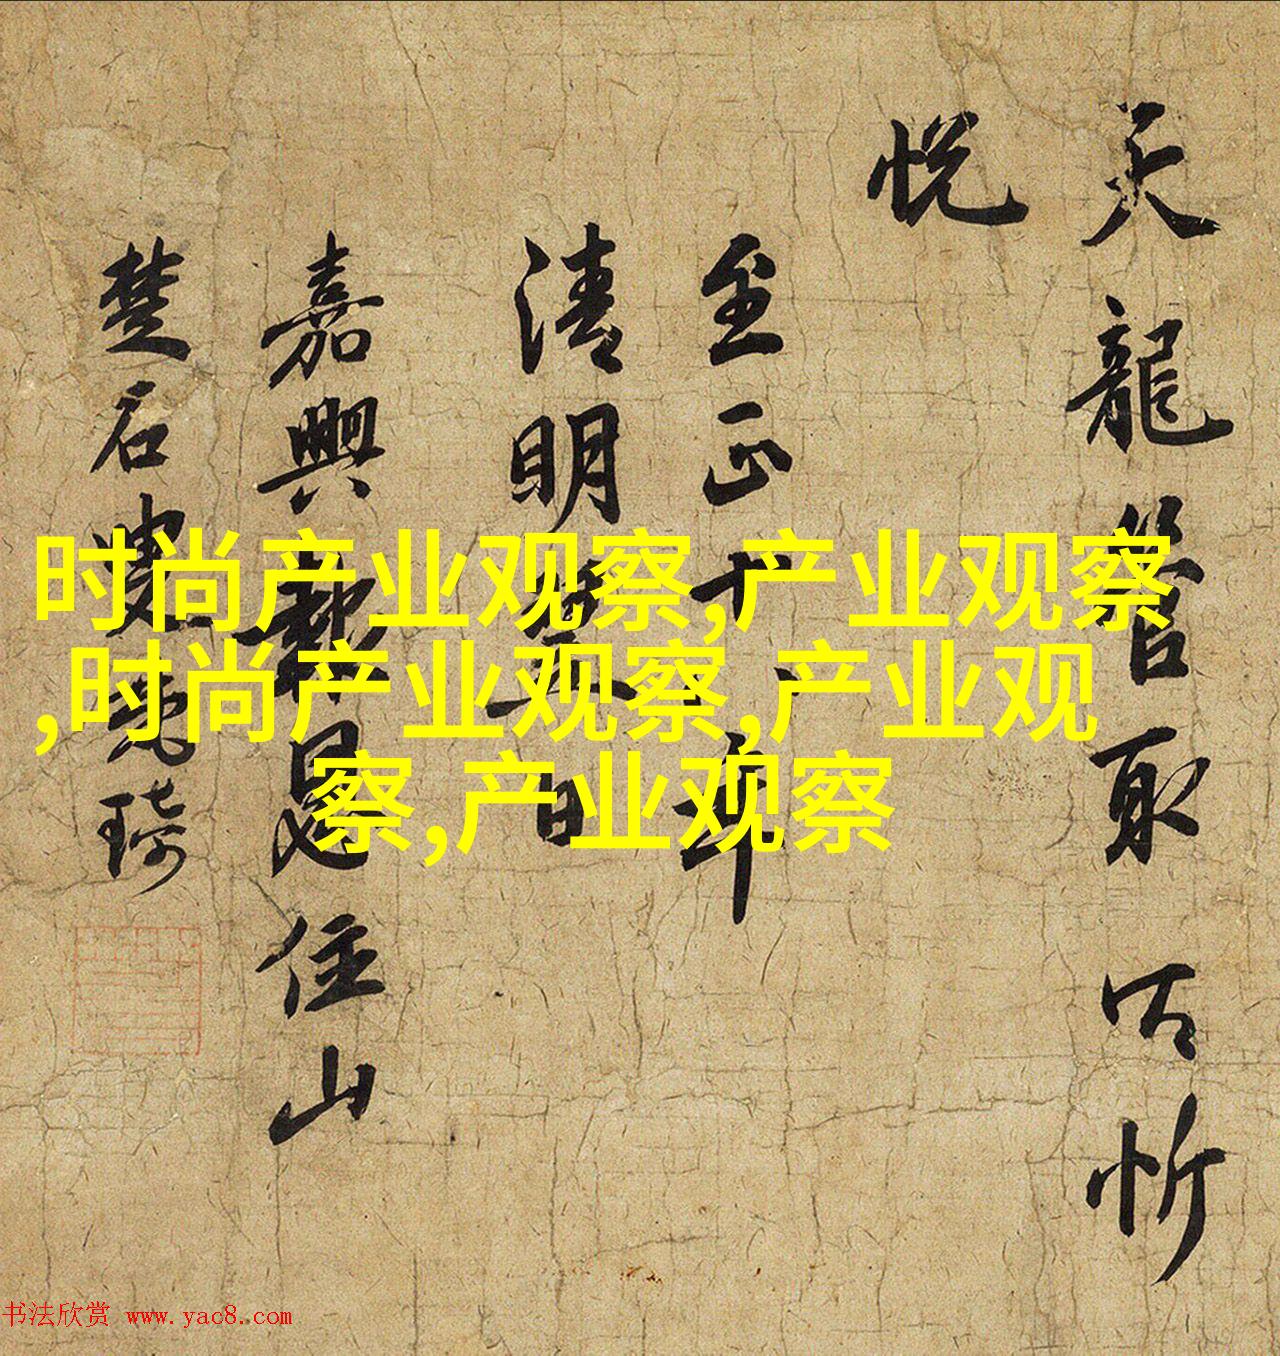 天龍管取以忻
悅
至正十年
清明日
嘉興報恩住山
楚石叟梵琦
时尚产业观察,产业观察
,时尚产业观察,产业观
察,产业观察
书法欣赏 www.yac8.com